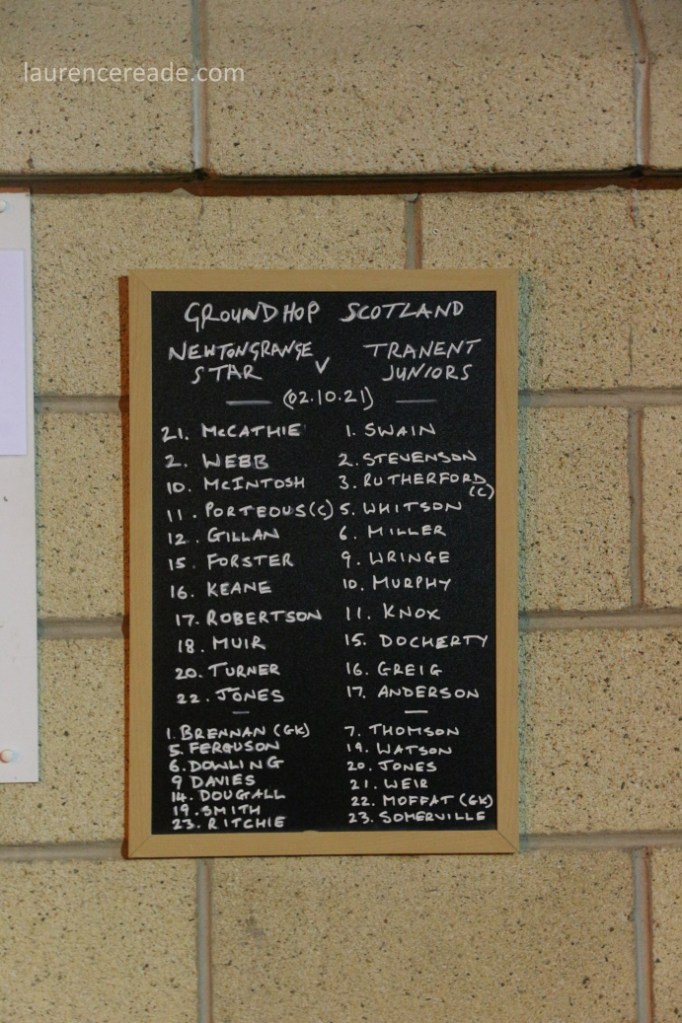 laurencereade.com
GROUNDHOP SCOTLAND
NEWTONGRANGE STAR V TRANENT JUNIORS
(02.10.21)
21. McCATHIE
2. WEBB
10. McINTOSH
11. PORTEOUS (C)
12. GILLAN
15. FORSTER
16. KEANE
17. ROBERTSON
18. MUIR
20. TURNER
22. JONES
1. BRENNAN (GK)
5. FERGUSON
6. DOWLING
9 DAVIES
14. DOUGALL
19. SMITH
23. RITCHIE
1. SWAIN
2. STEVENSON
3. RUTHERFORD (C)
5. WHITSON
6. MILLER
9. WRINGE
10. MURPHY
11. KNOX
15. DOCHERTY
16. GREIG
17. ANDERSON
7. THOMSON
19. WATSON
20. JONES
21. WEIR
22. MOFFAT (GK)
23. SOMERVILLE